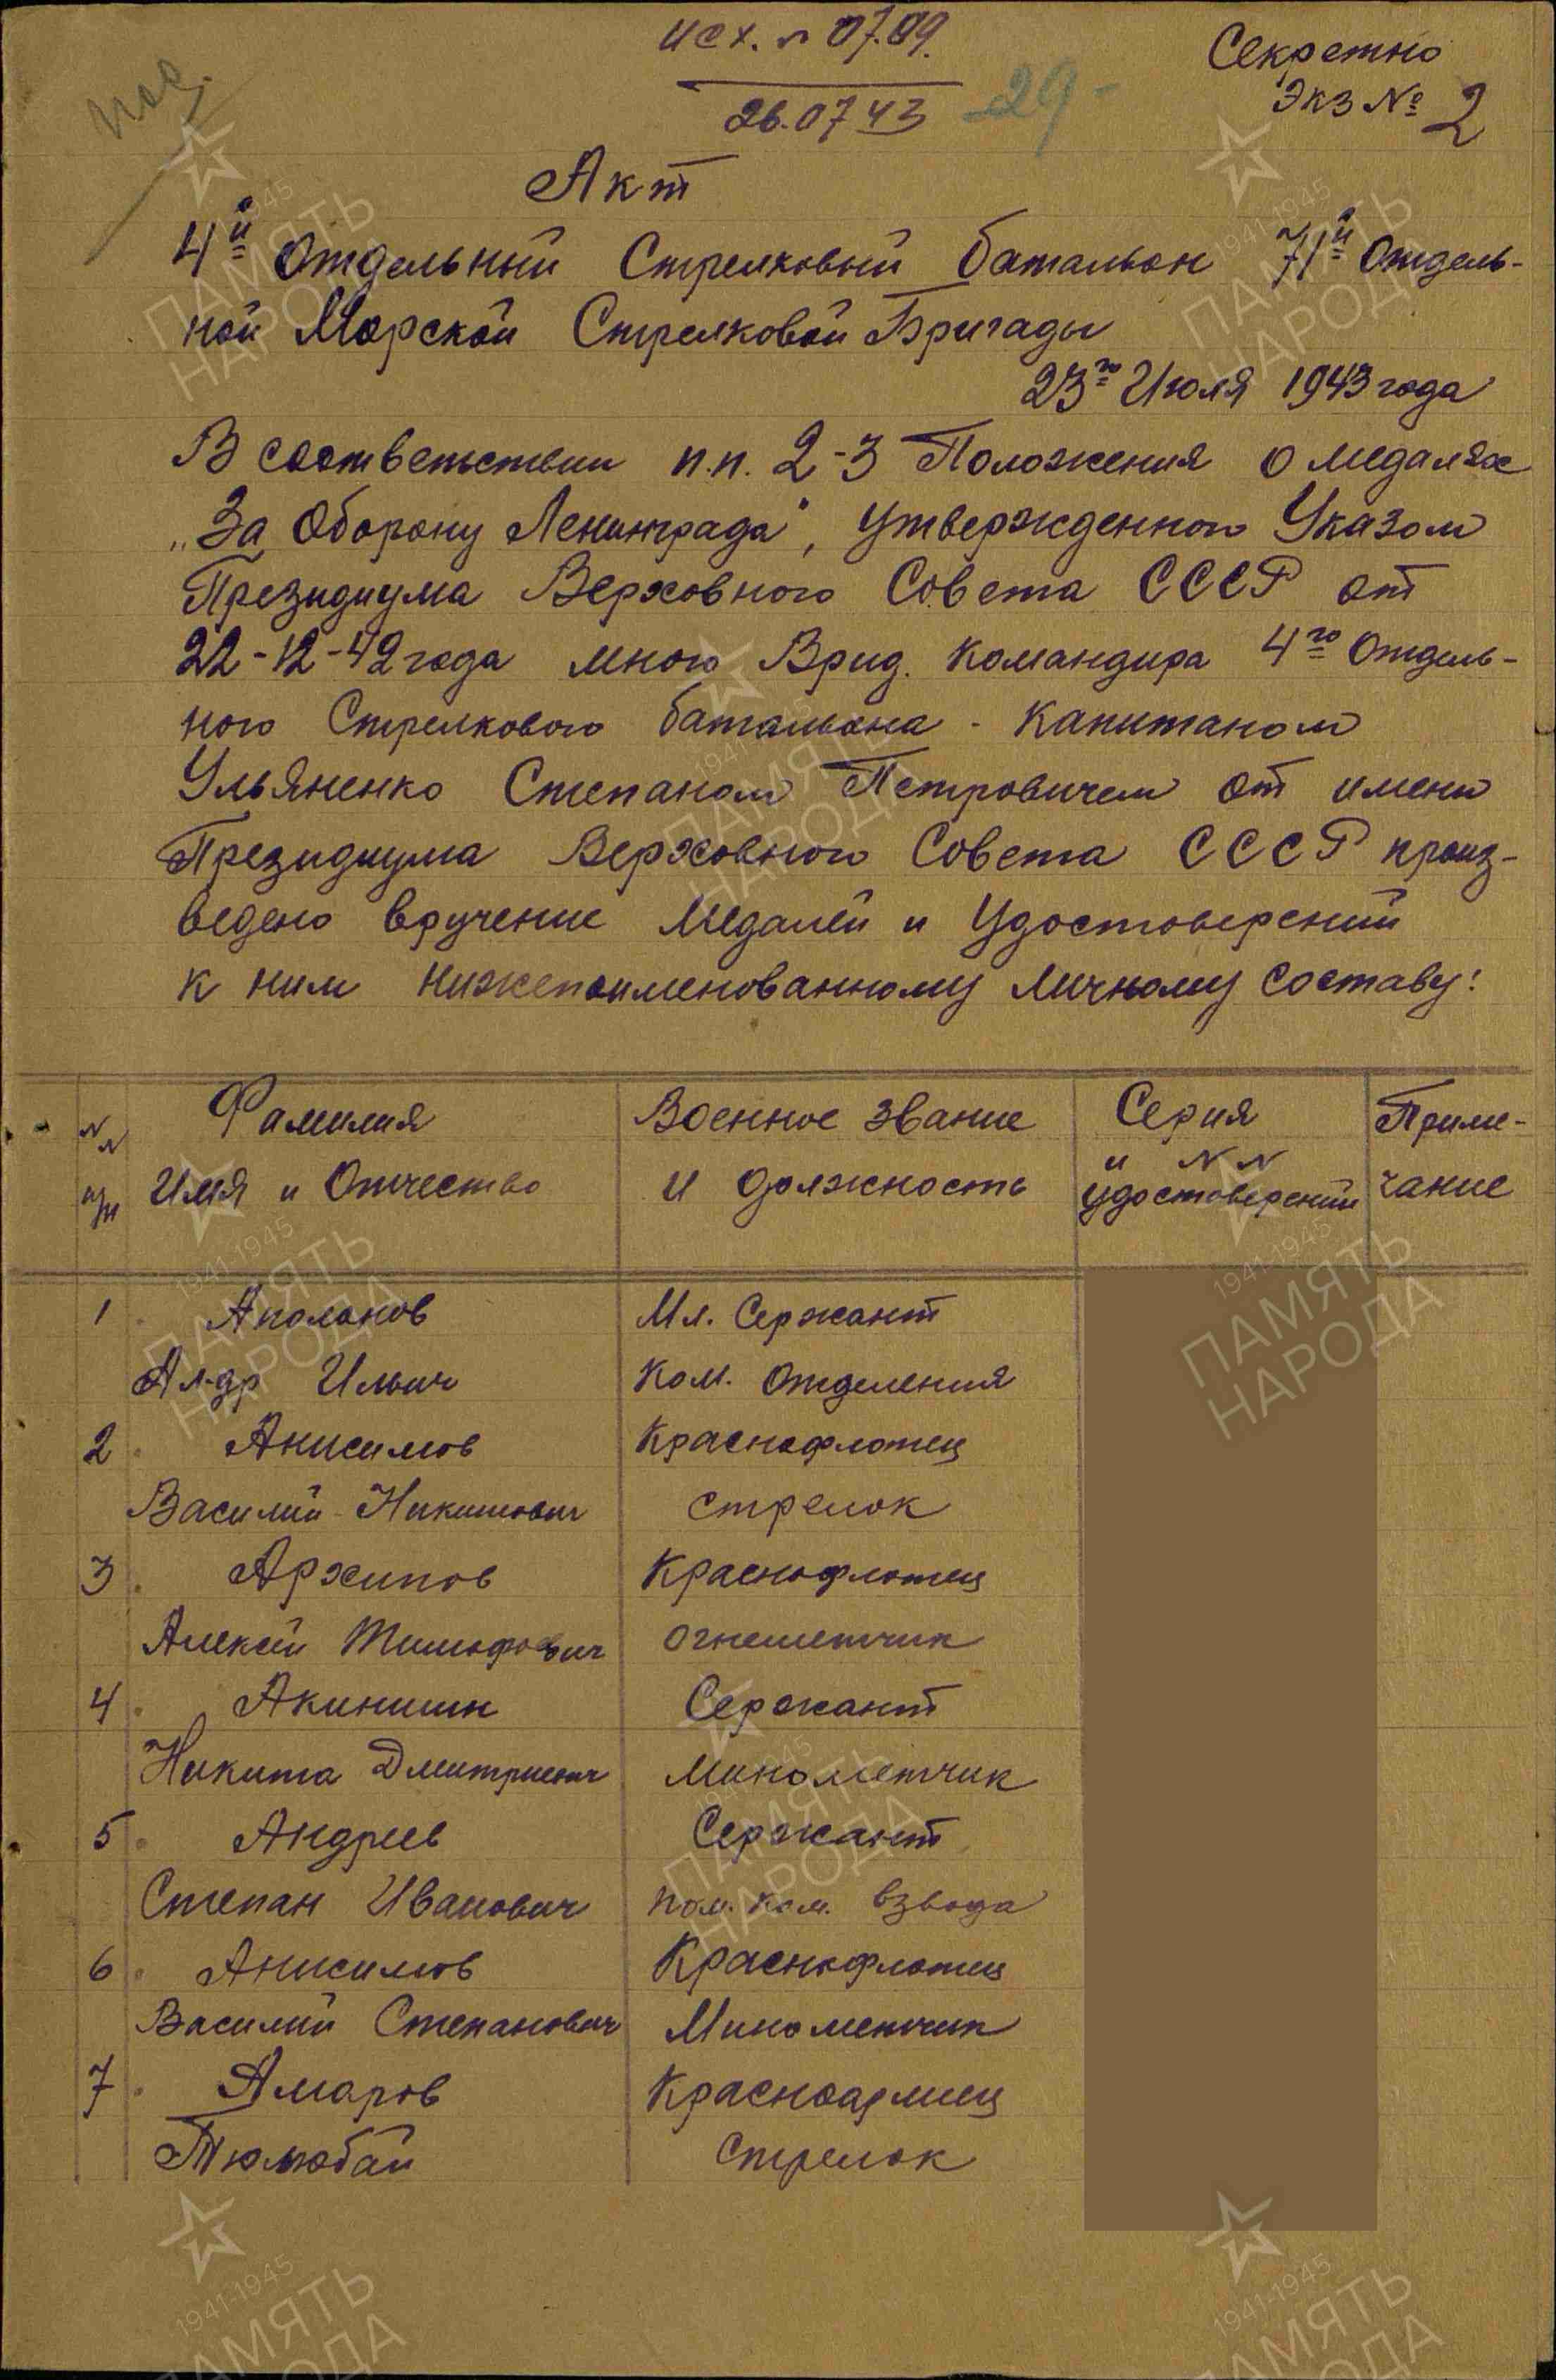 исх. № 0709.
26.07 43
-29-
Секретно
Экз № 2
Акт
4й Отдельный Стрелковый батальон 71й Отдель-
ной Морской Стрелковой Бригады
23го Июля 1943 года
В соответствии п.п. 2-3 Положения о медалях
„За Оборону Ленинграда", утвержденного Указом
Президиума Верховного Совета СССР от
22-12-42 года мною Врид. командира 4го Отдель-
ного Стрелкового батальона - капитаном
Ульяненко Степаном Петровичем от имени
Президиума Верховного Совета СССР произ-
ведено вручение медалей и Удостоверений
к ним нижепоименованному личному составу:
№№ п/п
Фамилия
Имя и Отчество
Военное звание
и должность
Серия
и №№
удостоверений
Приме-
чание
1 Аполонов Мл. Сержант
Ал-др Ильич Ком. Отделения
2 Анисимов Краснофлотец
Василий Никитович стрелок
3 Архипов Краснофлотец
Алексей Тимофеевич огнеметчик
4 Акинишин Сержант
Никита Дмитриевич минометчик
5 Андреев Сержант
Степан Иванович пом. ком. взвода
6 Анисимов Краснофлотец
Василий Степанович Минометчик
7 Амаров Красноармеец
Тюлюбай Стрелок
1941-1945
ПАМЯТЬ
НАРОДА